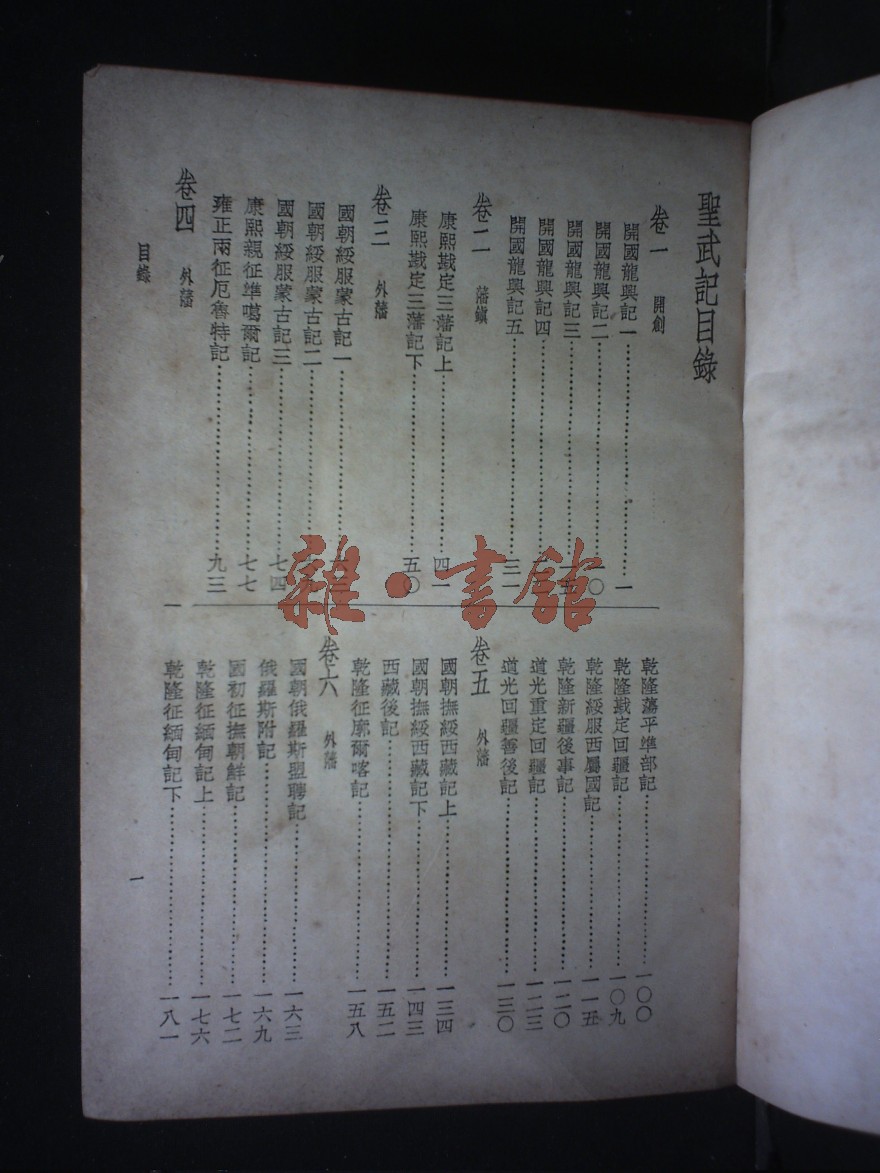 聖武記目錄
卷一 開創
開國龍興記一……一
開國龍興記二……一〇
開國龍興記三……
開國龍興記四……
開國龍興記五……三一
卷二 藩鎮
康熙戡定三藩記上……四一
康熙戡定三藩記下……五〇
卷三 外藩
國朝綏服蒙古記一……
國朝綏服蒙古記二……
國朝綏服蒙古記三……七四
康熙親征準噶爾記……七七
雍正兩征厄魯特記……九三
卷四 外藩
乾隆蕩平準部記……一〇〇
乾隆戡定回疆記……一〇九
乾隆綏服西屬國記……一一五
乾隆新疆後事記……一二〇
道光重定回疆記……一二三
道光回疆善後記……一三〇
卷五 外藩
國朝撫綏西藏記上……一三四
國朝撫綏西藏記下……一四三
西藏後記……一五二
乾隆征廓爾喀記……一五八
卷六 外藩
國朝俄羅斯盟聘記……一六三
俄羅斯附記……一六九
國初征撫朝鮮記……一七二
乾隆征緬甸記上……一七六
乾隆征緬甸記下……一八一
目錄
一
一
雜·書館